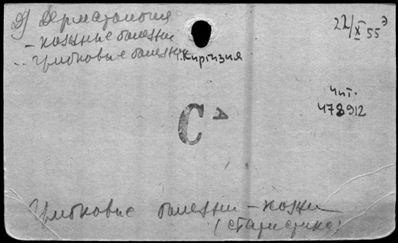 Д) Дерматология
- кожные болезни
.. Грибковые болезни
т. Киргизия
22/X 55 э
Чит.
478912
С А
Грибковые болезни - кожи
(статистика)